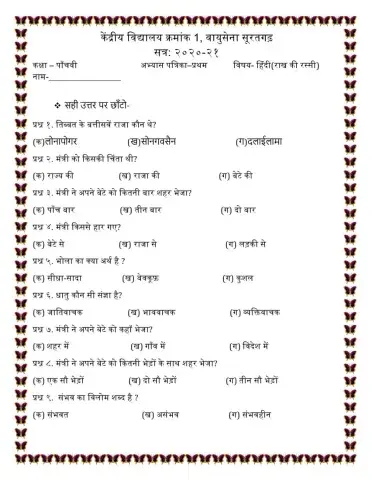 केंद्रीय विद्यालय क्रमांक 1, वायुसेना सूरतगढ़
सत्र: २०२०-२१
कक्षा – पाँचवी अभ्यास पत्रिका–प्रथम विषय- हिंदी(राख की रस्सी)
नाम-
❖ सही उत्तर पर छाँटो-
प्रश्न १. तिब्बत के बत्तीसवें राजा कौन थे?
(क)लोनापोगर (ख)सोनगवसैन (ग)दलाईलामा
प्रश्न २. मंत्री को किसकी चिंता थी?
(क) राज्य की (ख) राजा की (ग) बेटे की
प्रश्न ३. मंत्री ने अपने बेटे को कितनी बार शहर भेजा?
(क) पाँच बार (ख) तीन बार (ग) दो बार
प्रश्न ४. मंत्री किससे हार गए?
(क) बेटे से (ख) राजा से (ग) लड़की से
प्रश्न ५. भोला का क्या अर्थ है ?
(क) सीधा-सादा (ख) बेवकूफ़ (ग) कुशल
प्रश्न ६. धातु कौन सी संज्ञा है?
(क) जातिवाचक (ख) भाववाचक (ग) व्यक्तिवाचक
प्रश्न ७. मंत्री ने अपने बेटे को कहाँ भेजा?
(क) शहर में (ख) गाँव में (ग) विदेश में
प्रश्न ८. मंत्री ने अपने बेटे को कितनी भेड़ों के साथ शहर भेजा?
(क) एक सौ भेड़ों (ख) दो सौ भेड़ों (ग) तीन सौ भेड़ों
प्रश्न ९. संभव का विलोम शब्द है ?
(क) संभवत (ख) असंभव (ग) संभवहीन